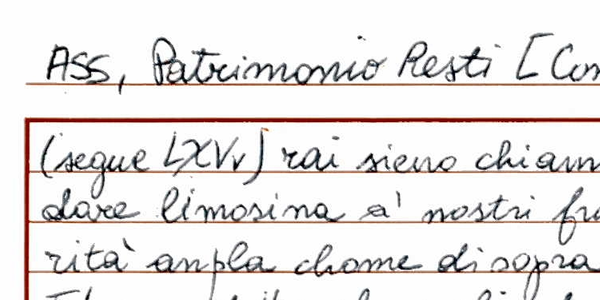 ASS, Patrimonio Resti [Con
(segue LXVv) rai sieno chiam
dare limosina a' nostri fra
rità anpla chome di sopra